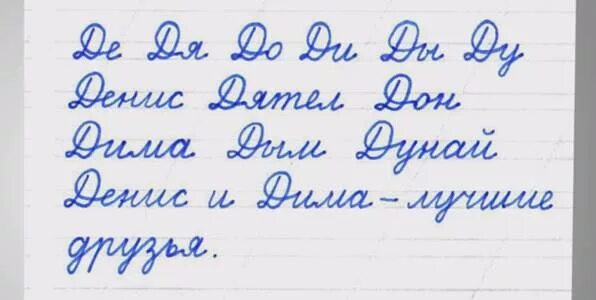 Де Дя До Ди Ды Ду
Денис Дятел Дон
Дима Дым Дунай
Денис и Дима – лучшие
друзья.